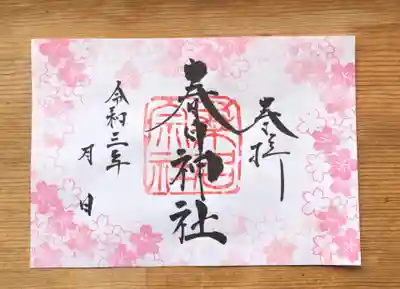 奉拝
春日神社
桑名宗社
令和三年
月 日